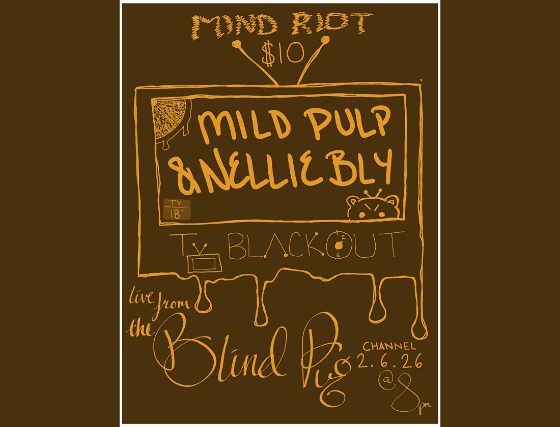 MIND RIOT
$10
MILD PULP
& NELLIE BLY
TV
18+
TV BLACKOUT
live from
the
Blind Pig
CHANNEL
2.6.26
@ 8pm